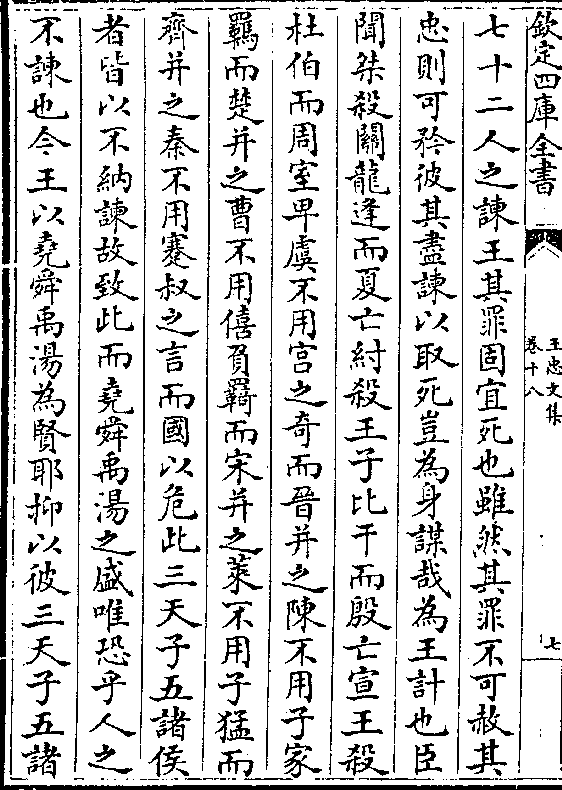 欽定四庫全書
王忠文集
卷十八
七
七十二人之諫王其罪固宜死也雖然其罪不可赦其
忠則可矜彼其盡諫以取死豈為身謀哉為王計也臣
聞桀殺關龍逄而夏亡紂殺王子比干而殷亡宣王殺
杜伯而周室卑虞不用宮之奇而晉并之陳不用子家
羈而楚并之曹不用僖負羇而宋并之萊不用子猛而
齊并之秦不用蹇叔之言而國以危此三天子五諸侯
者皆以不納諫故致此而堯舜禹湯之盛唯恐乎人之
不諫也今王以堯舜禹湯為賢耶抑以彼三天子五諸